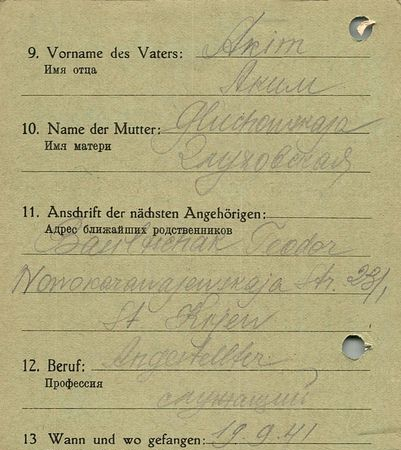 9. Vorname des Vaters: Akim
Имя отца
Аким
10. Name der Mutter: Gluchowskaja
Имя матери
Глуховская
11. Anschrift der nächsten Angehörigen:
Адрес ближайших родственников
Teodor
Str. 23/1
St. Kijew
12. Beruf: Angestellter
Профессия
служащий
13 Wann und wo gefangen: 19.9.41